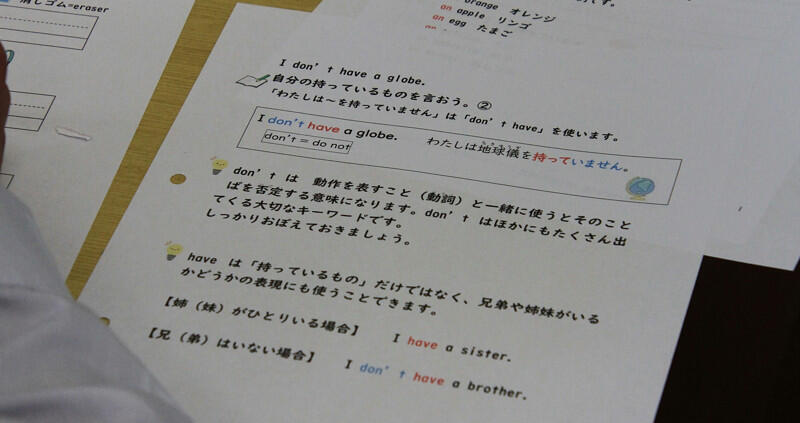 消しゴム=eraser
orange オレンジ
an apple リンゴ
an egg たまご
I don't have a globe.
自分の持っているものを言おう。②
「わたしは～を持っていません」は「don't have」を使います。
I don't have a globe. わたしは地球儀を持っていません。
don't = do not
don't は 動作を表すこと（動詞）と一緒に使うとそのこと
ばを否定する意味になります。don't はほかにもたくさん出
てくる大切なキーワードです。
しっかりおぼえておきましょう。
have は「持っているもの」だけではなく、兄弟や姉妹がいる
かどうかの表現にも使うことできます。
【姉（妹）がひとりいる場合】 I have a sister.
【兄（弟）はいない場合】 I don't have a brother.